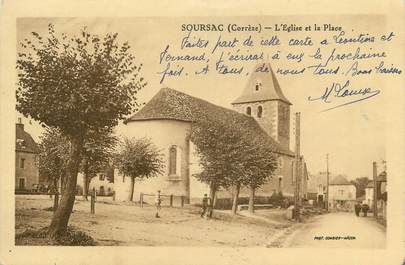 SOURSAC (Corrèze) - L'Eglise et la Place
Faites part de cette carte à Léontine et
Fernand, j'écrirai à eux la prochaine
fois. A tous, de nous tous. Bons baisers
M Louise
PHOT. COMBIER-MÂCON